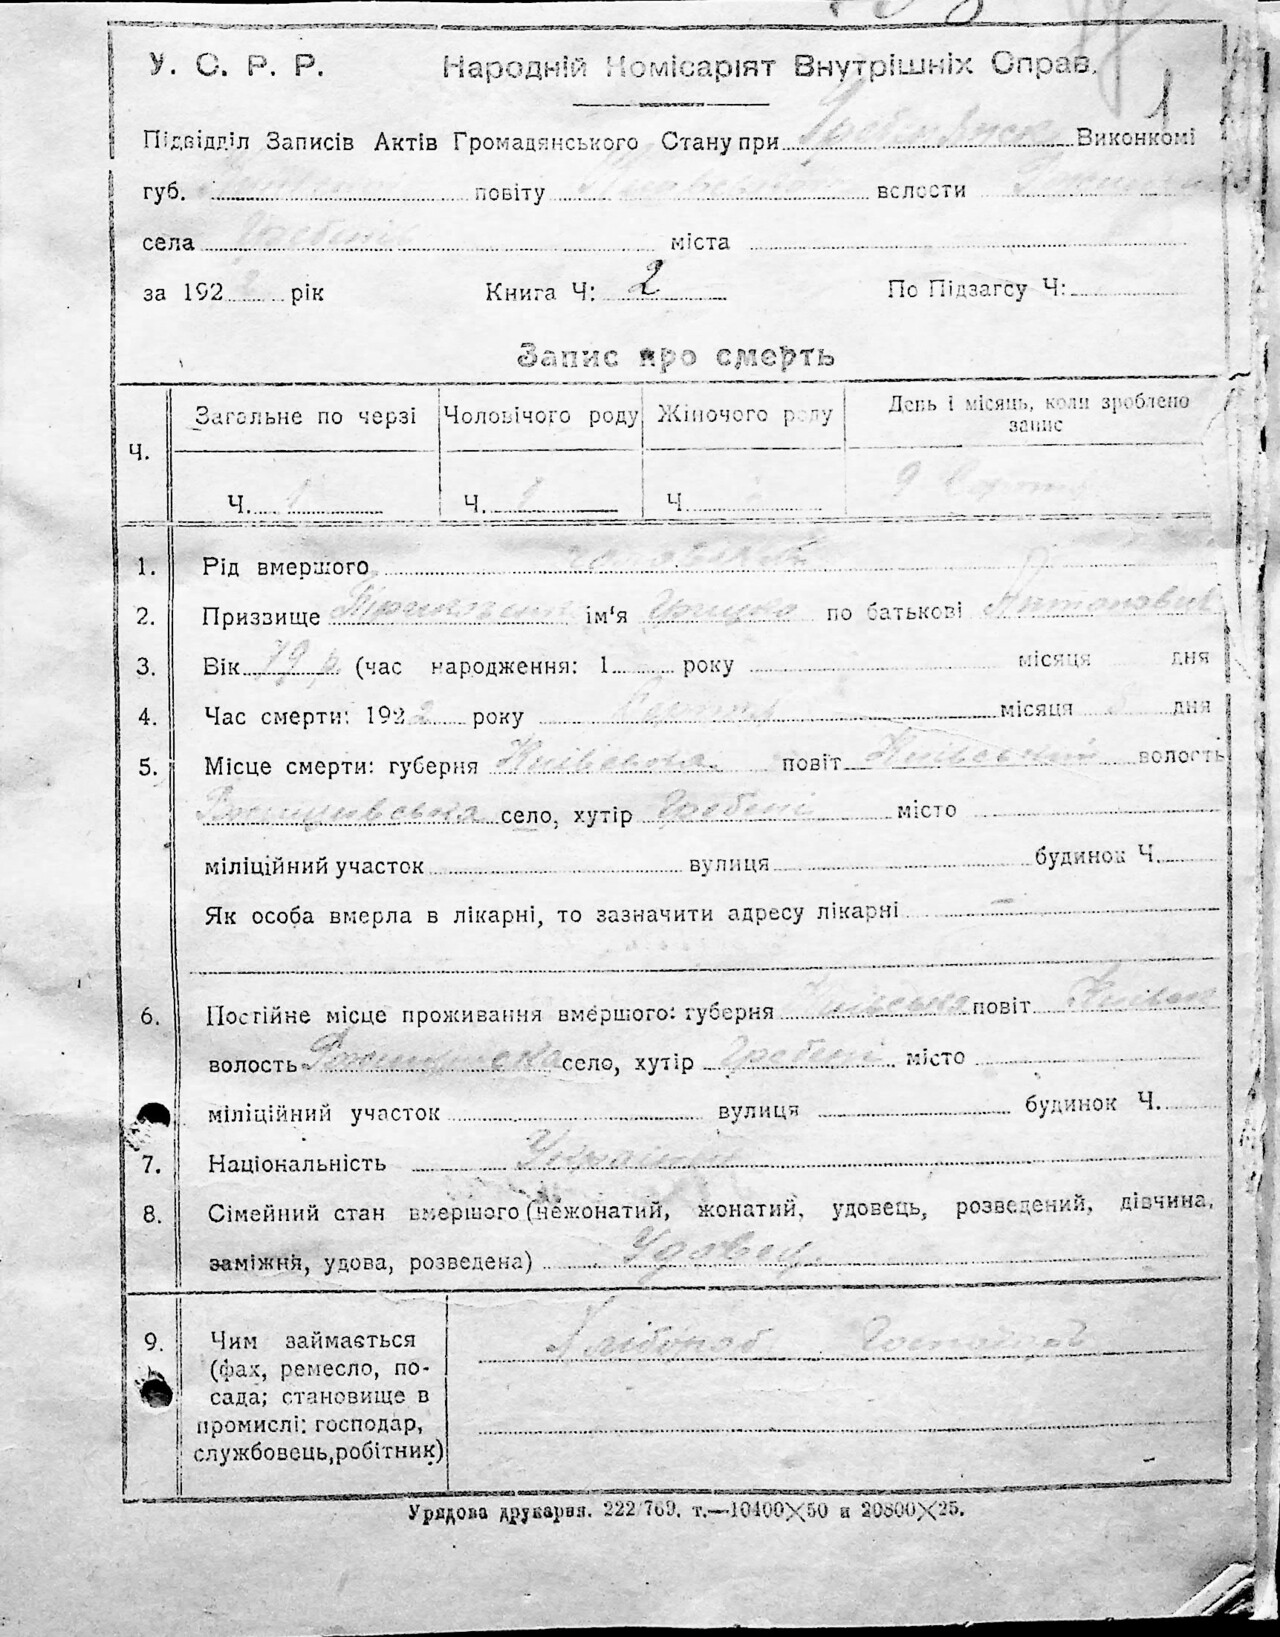 У. С. Р. Р. Народній Комісаріят Внутрішніх Справ.
Підвідділ Записів Актів Громадянського Стану при Виконкомі
губ. повіту волости
села Гребені міста
за 1922 рік Книга Ч: 2 По Підзагсу Ч:
Запис про смерть
Ч. Загальне по черзі Чоловічого роду Жіночого роду День і місяць, коли зроблено запис
Ч. 1 Ч. 1 Ч. 9
1. Рід вмершого
2. Призвище ім'я Грицко по батькові Антонович
3. Вік 79 р. (час народження: 1 року місяця дня
4. Час смерти: 1922 року місяця 8 дня
5. Місце смерти: губерня Київська повіт Київський волость
Ржищівська село, хутір Гребені місто
міліційний участок вулиця будинок Ч.
Як особа вмерла в лікарні, то зазначити адресу лікарні –
6. Постійне місце проживання вмершого: губерня Київська повіт
волость село, хутір Гребені місто
міліційний участок вулиця будинок Ч.
7. Національність
8. Сімейний стан вмершого (нежонатий, жонатий, удовець, розведений, дівчина,
заміжня, удова, розведена) Удовец
9. Чим займається
(фах, ремесло, по-
сада; становище в
промислі: господар,
службовець, робітник)
Хлібороб
Урядова друкарня. 222/769. т.—10400×50 и 20800×25.